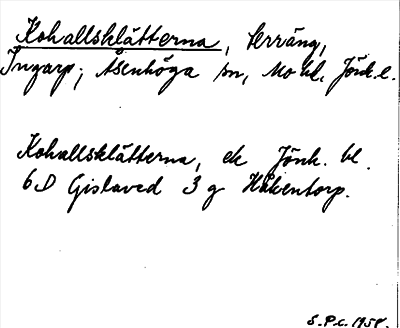 Kohallsklätterna, terräng,
Ingarp; Åsenhöga sn, Mo hd, Jönk. l.
Kohallsklätterna, ek Jönk. bl.
6D Gislaved 3 g Håkentorp.
S.P.c. 1958.